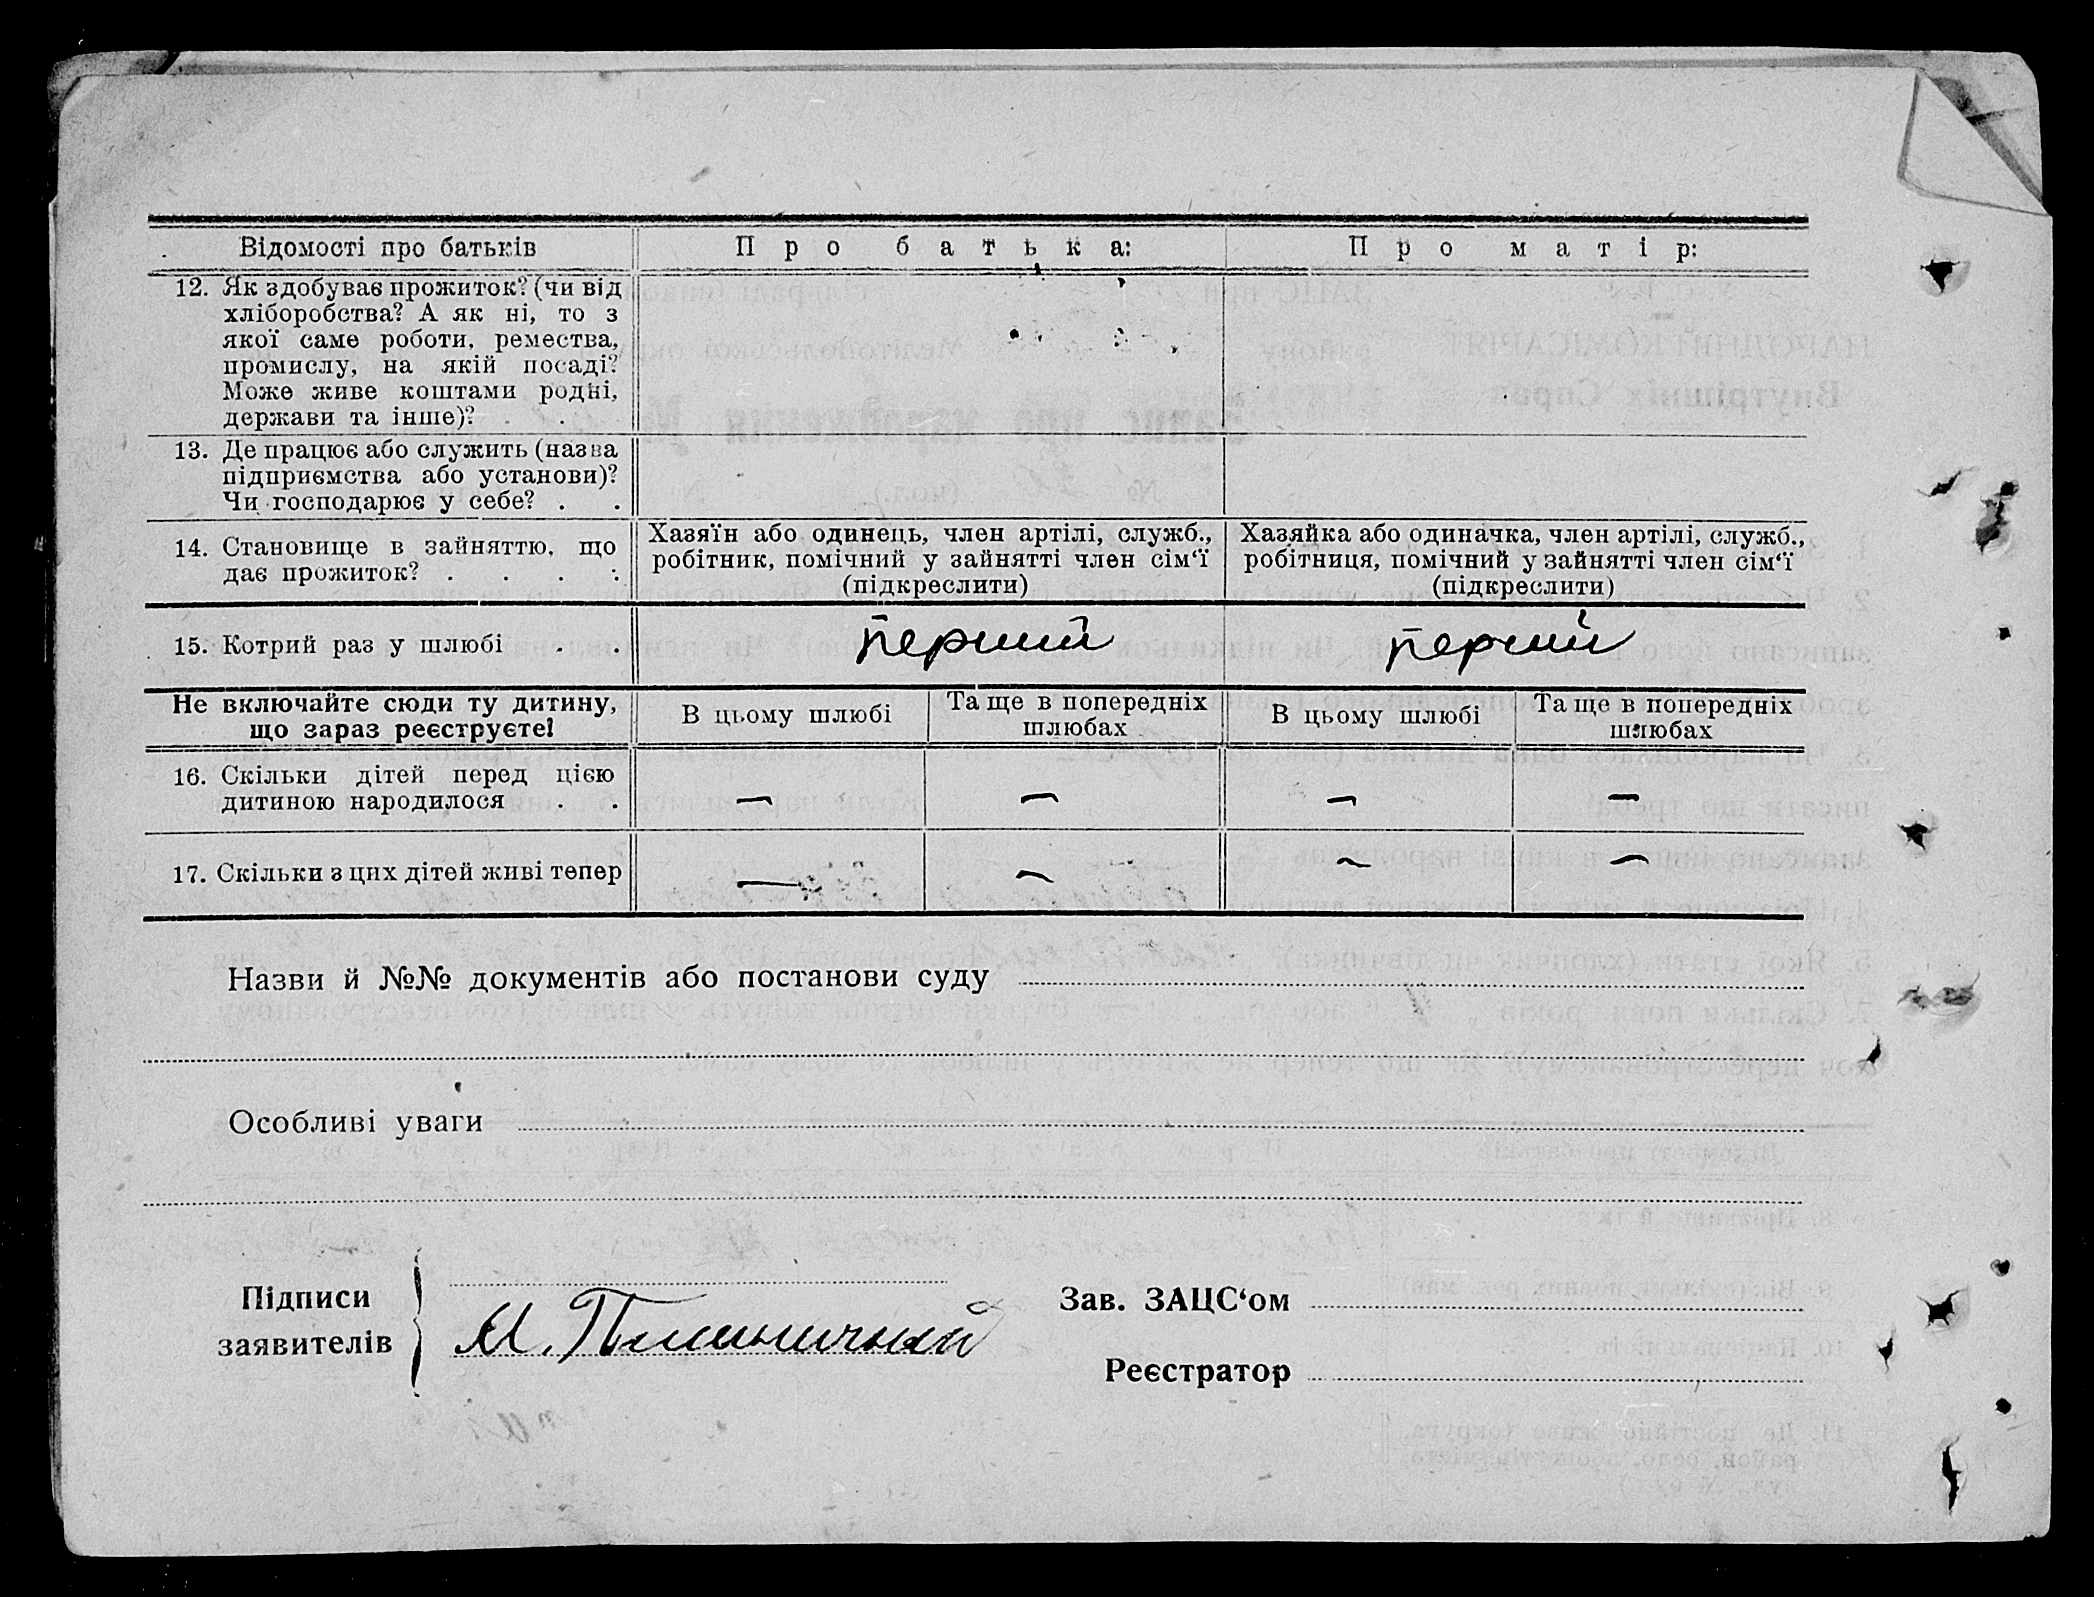 Відомості про батьків Про батька: Про матір:
12. Як здобуває прожиток? (чи від
хліборобства? А як ні, то з
якої саме роботи, ремества,
промислу, на якій посаді?
Може живе коштами родні,
держави та інше)? .
13. Де працює або служить (назва
підприємства або установи)?
Чи господарює у себе? . .
14. Становище в зайняттю, що
дає прожиток? . . . .
Хазяїн або одинець, член артілі, служб.,
робітник, помічний у зайнятті член сім‘ї
(підкреслити)
Хазяйка або одиначка, член артілі, служб.,
робітниця, помічний у зайнятті член сім‘ї
(підкреслити)
15. Котрий раз у шлюбі . . перший перший
Не включайте сюди ту дитину,
що зараз реєструєте!
В цьому шлюбі
Та ще в попередніх
шлюбах
В цьому шлюбі
Та ще в попередніх
шлюбах
16. Скільки дітей перед цією
дитиною народилося . . — — — —
17. Скільки з цих дітей живі тепер — — — —
Назви й №№ документів або постанови суду
Особливі уваги
Підписи
заявителів
М. Пшеничний
Зав. ЗАЦС‘ом
Реєстратор